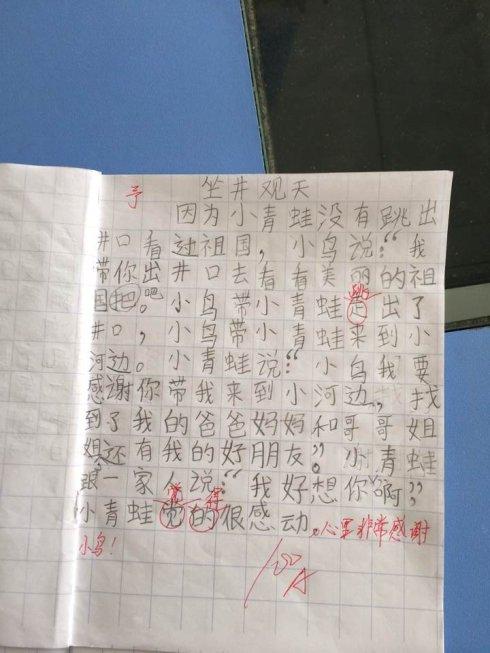 坐井观天
因为小青蛙没有跳出
井口看过祖国，小鸟说：“我
带你出井口去看有美丽的祖
国把。吧小鸟带小青蛙走出了
跳
井口，小鸟带小青蛙来到小
河边。小青蛙说：“小鸟我要
感谢你带我来到小河边，找
到了我的爸爸妈妈和哥哥姐
姐，还有我的好朋友”。小青蛙
跟一家人说：“我好想你啊”，
觉得
小青蛙的很感动。心里非常感谢
小鸟！
100
A